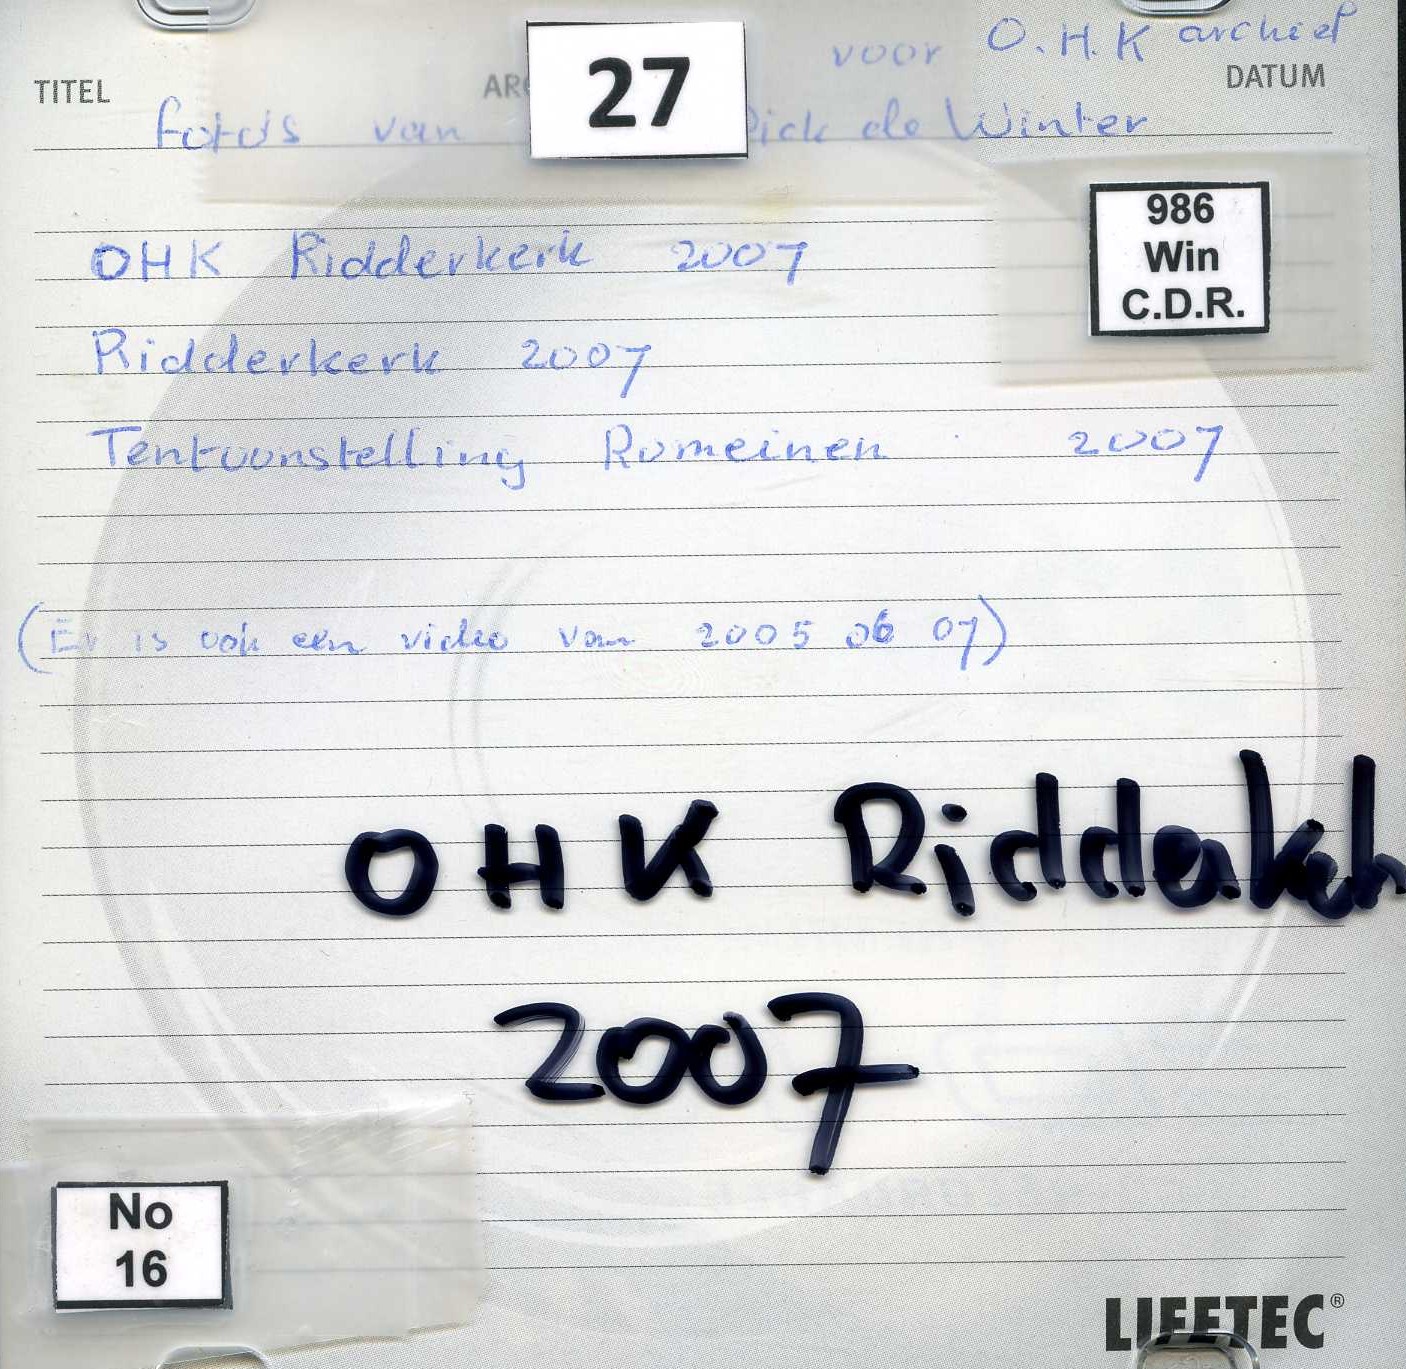 voor O.H.K archief
TITEL
27
DATUM
foto's van Dick de Winter
986
Win
C.D.R.
OHK Ridderkerk 2007
Ridderkerk 2007
Tentoonstelling Romeinen 2007
(Er is ook een video van 2005 06 07)
OHK
2007
No
16
LIFETEC®